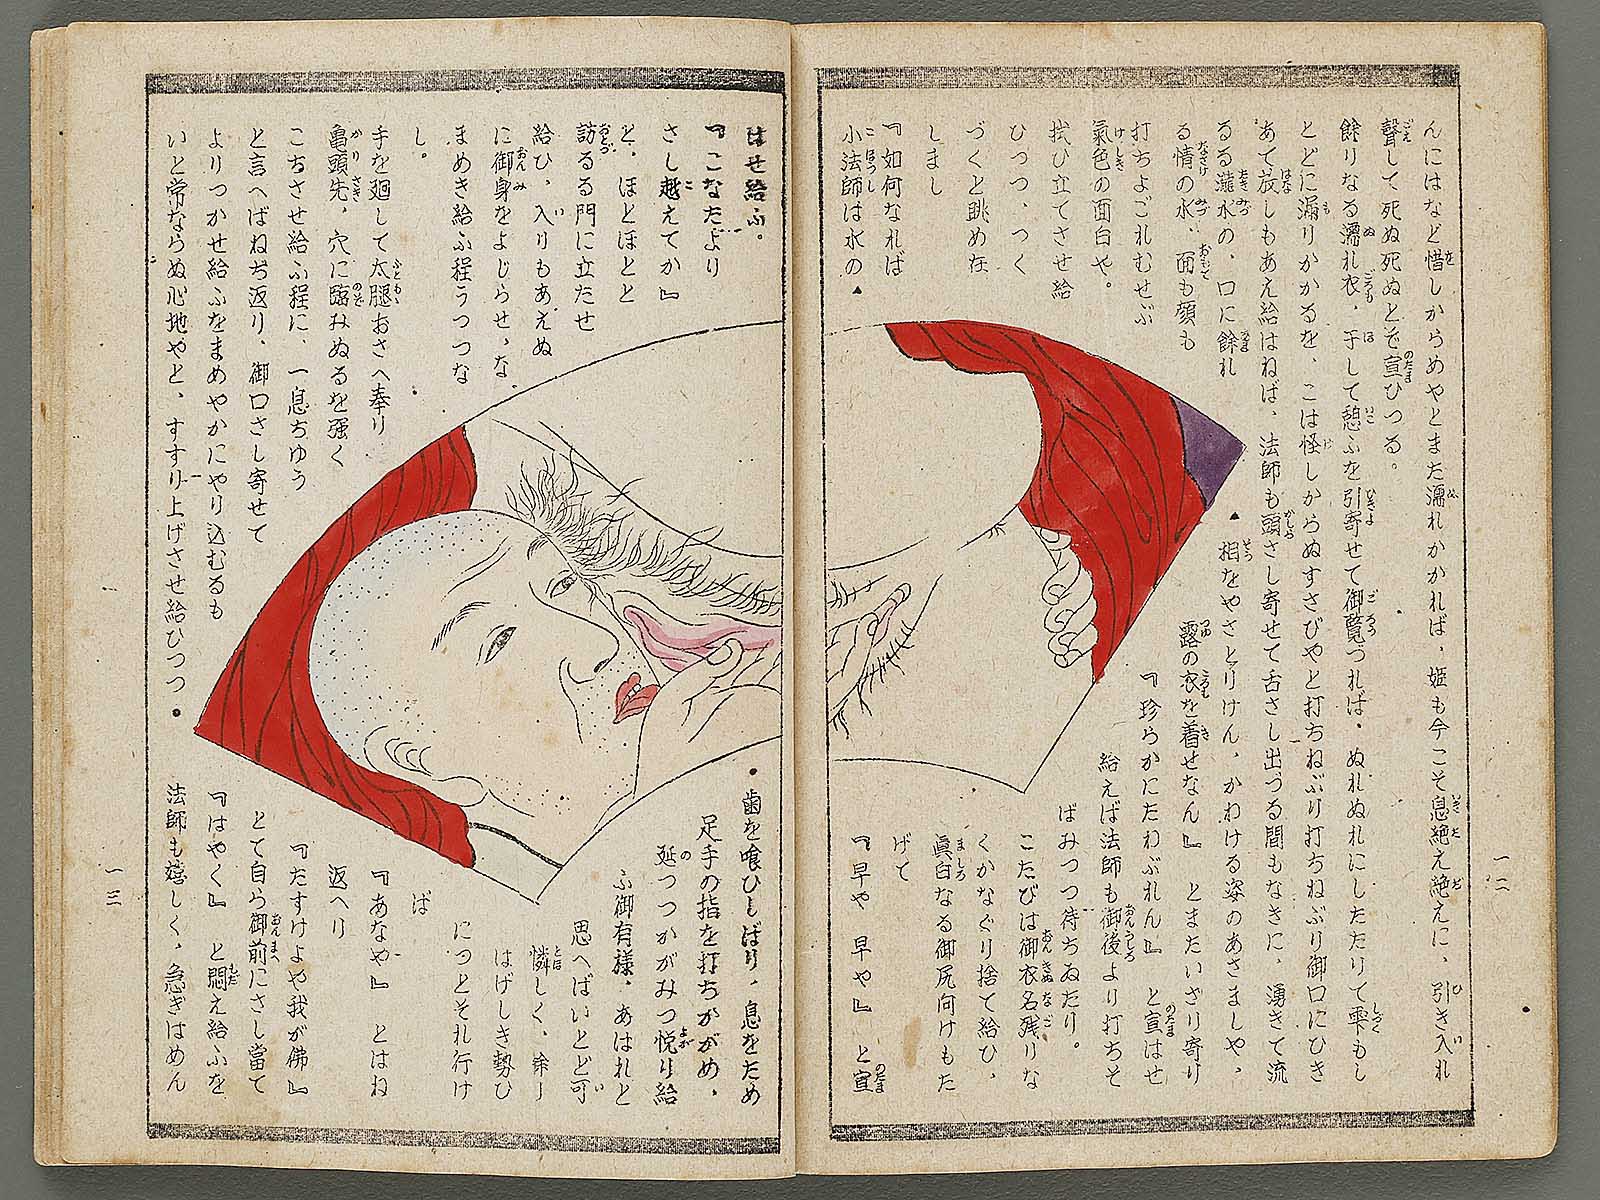 んにはなど惜しからめやとまた濡れかかれば、姫も今こそ息絶え絶えに、引き入れ
聲して死ぬ死ぬとぞ宣ひつる。
餘りなる濡れ衣、干して憩ふを引寄せて御覧づれば、ぬれぬれにしたたりて雫もし
とどに漏りかかるを、こは怪しからぬすさびやと打ちねぶり打ちねぶり御口にひき
あて放しもあえ給はねば、法師も頭さし寄せて舌さし出づる間もなきに、湧きて流
るる瀧水の、口に餘れ
る情の水、面も顔も
打ちよごれむせぶ
氣色の面白や。
拭ひ立てさせ給
ひつつ、つく
づくと眺め在
しまし
『如何なれば
小法師は水の▲
▲相をやさとりけん、かわける姿のあさましや、
露の衣を着せなん』 とまたいざり寄り
『珍らかにたわぶれん』 と宣はせ
給えば法師も御後より打ちそ
ばみつつ待ちゐたり。
こたびは御衣名残りな
くかなぐり捨て給ひ、
眞白なる御尻向けもた
げて
『早や 早や』 と宣
一二
はせ給ふ。
『こなたより
さし越えてか』
と、ほとほとと
訪るる門に立たせ
給ひ、入りもあえぬ
に御身をよじらせ、な
まめき給ふ程うつつな
し。
手を廻して太腿おさへ奉り
亀頭先、穴に臨みぬるを強く
こちさせ給ふ程に、一息ちゆう
と言へばねぢ返り、御口さし寄せて
よりつかせ給ふをまめやかにやり込むるも
いと常ならぬ心地やと、すすり上げさせ給ひつつ●
●歯を喰ひしばり、息をため
足手の指を打ちかがめ、
延つつかがみつ悦り給
ふ御有様、あはれと
思へばいとど可
憐しく、餘り
はげしき勢ひ
につとそれ行け
ば
『あなや』 とはね
返へり
『たすけよや我が佛』
とて自ら御前にさし當て
『はやく』 と悶え給ふを
法師も嬉しく、急ぎはめん
一三